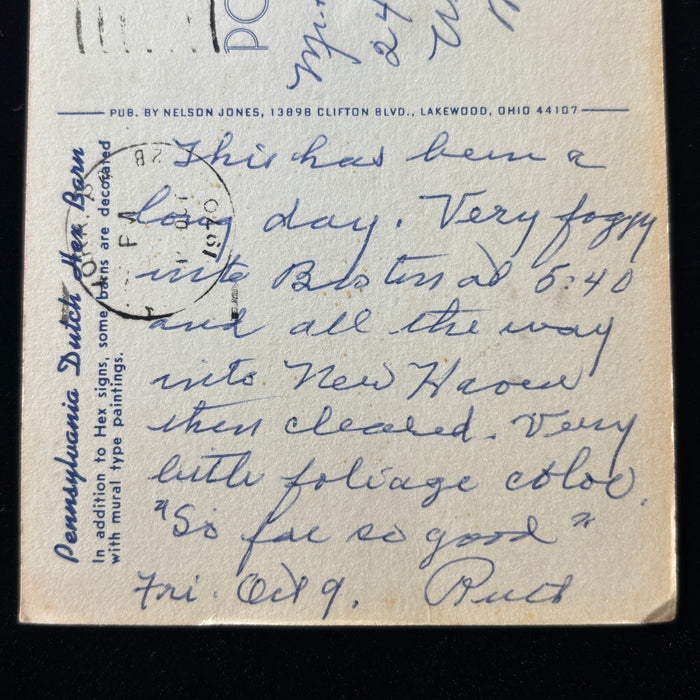 PO
PUB. BY NELSON JONES, 13898 CLIFTON BLVD., LAKEWOOD, OHIO 44107
Pennsylvania Dutch Hex Barn
In addition to Hex signs, some barns are decorated
with mural type paintings.
YORK, PA
OCT
1970
This has been a
long day. Very foggy
into Boston at 5:40
and all the way
into New Haven
then cleared. Very
little foliage color.
"So far so good"
Fri. Oct 9. Ruth